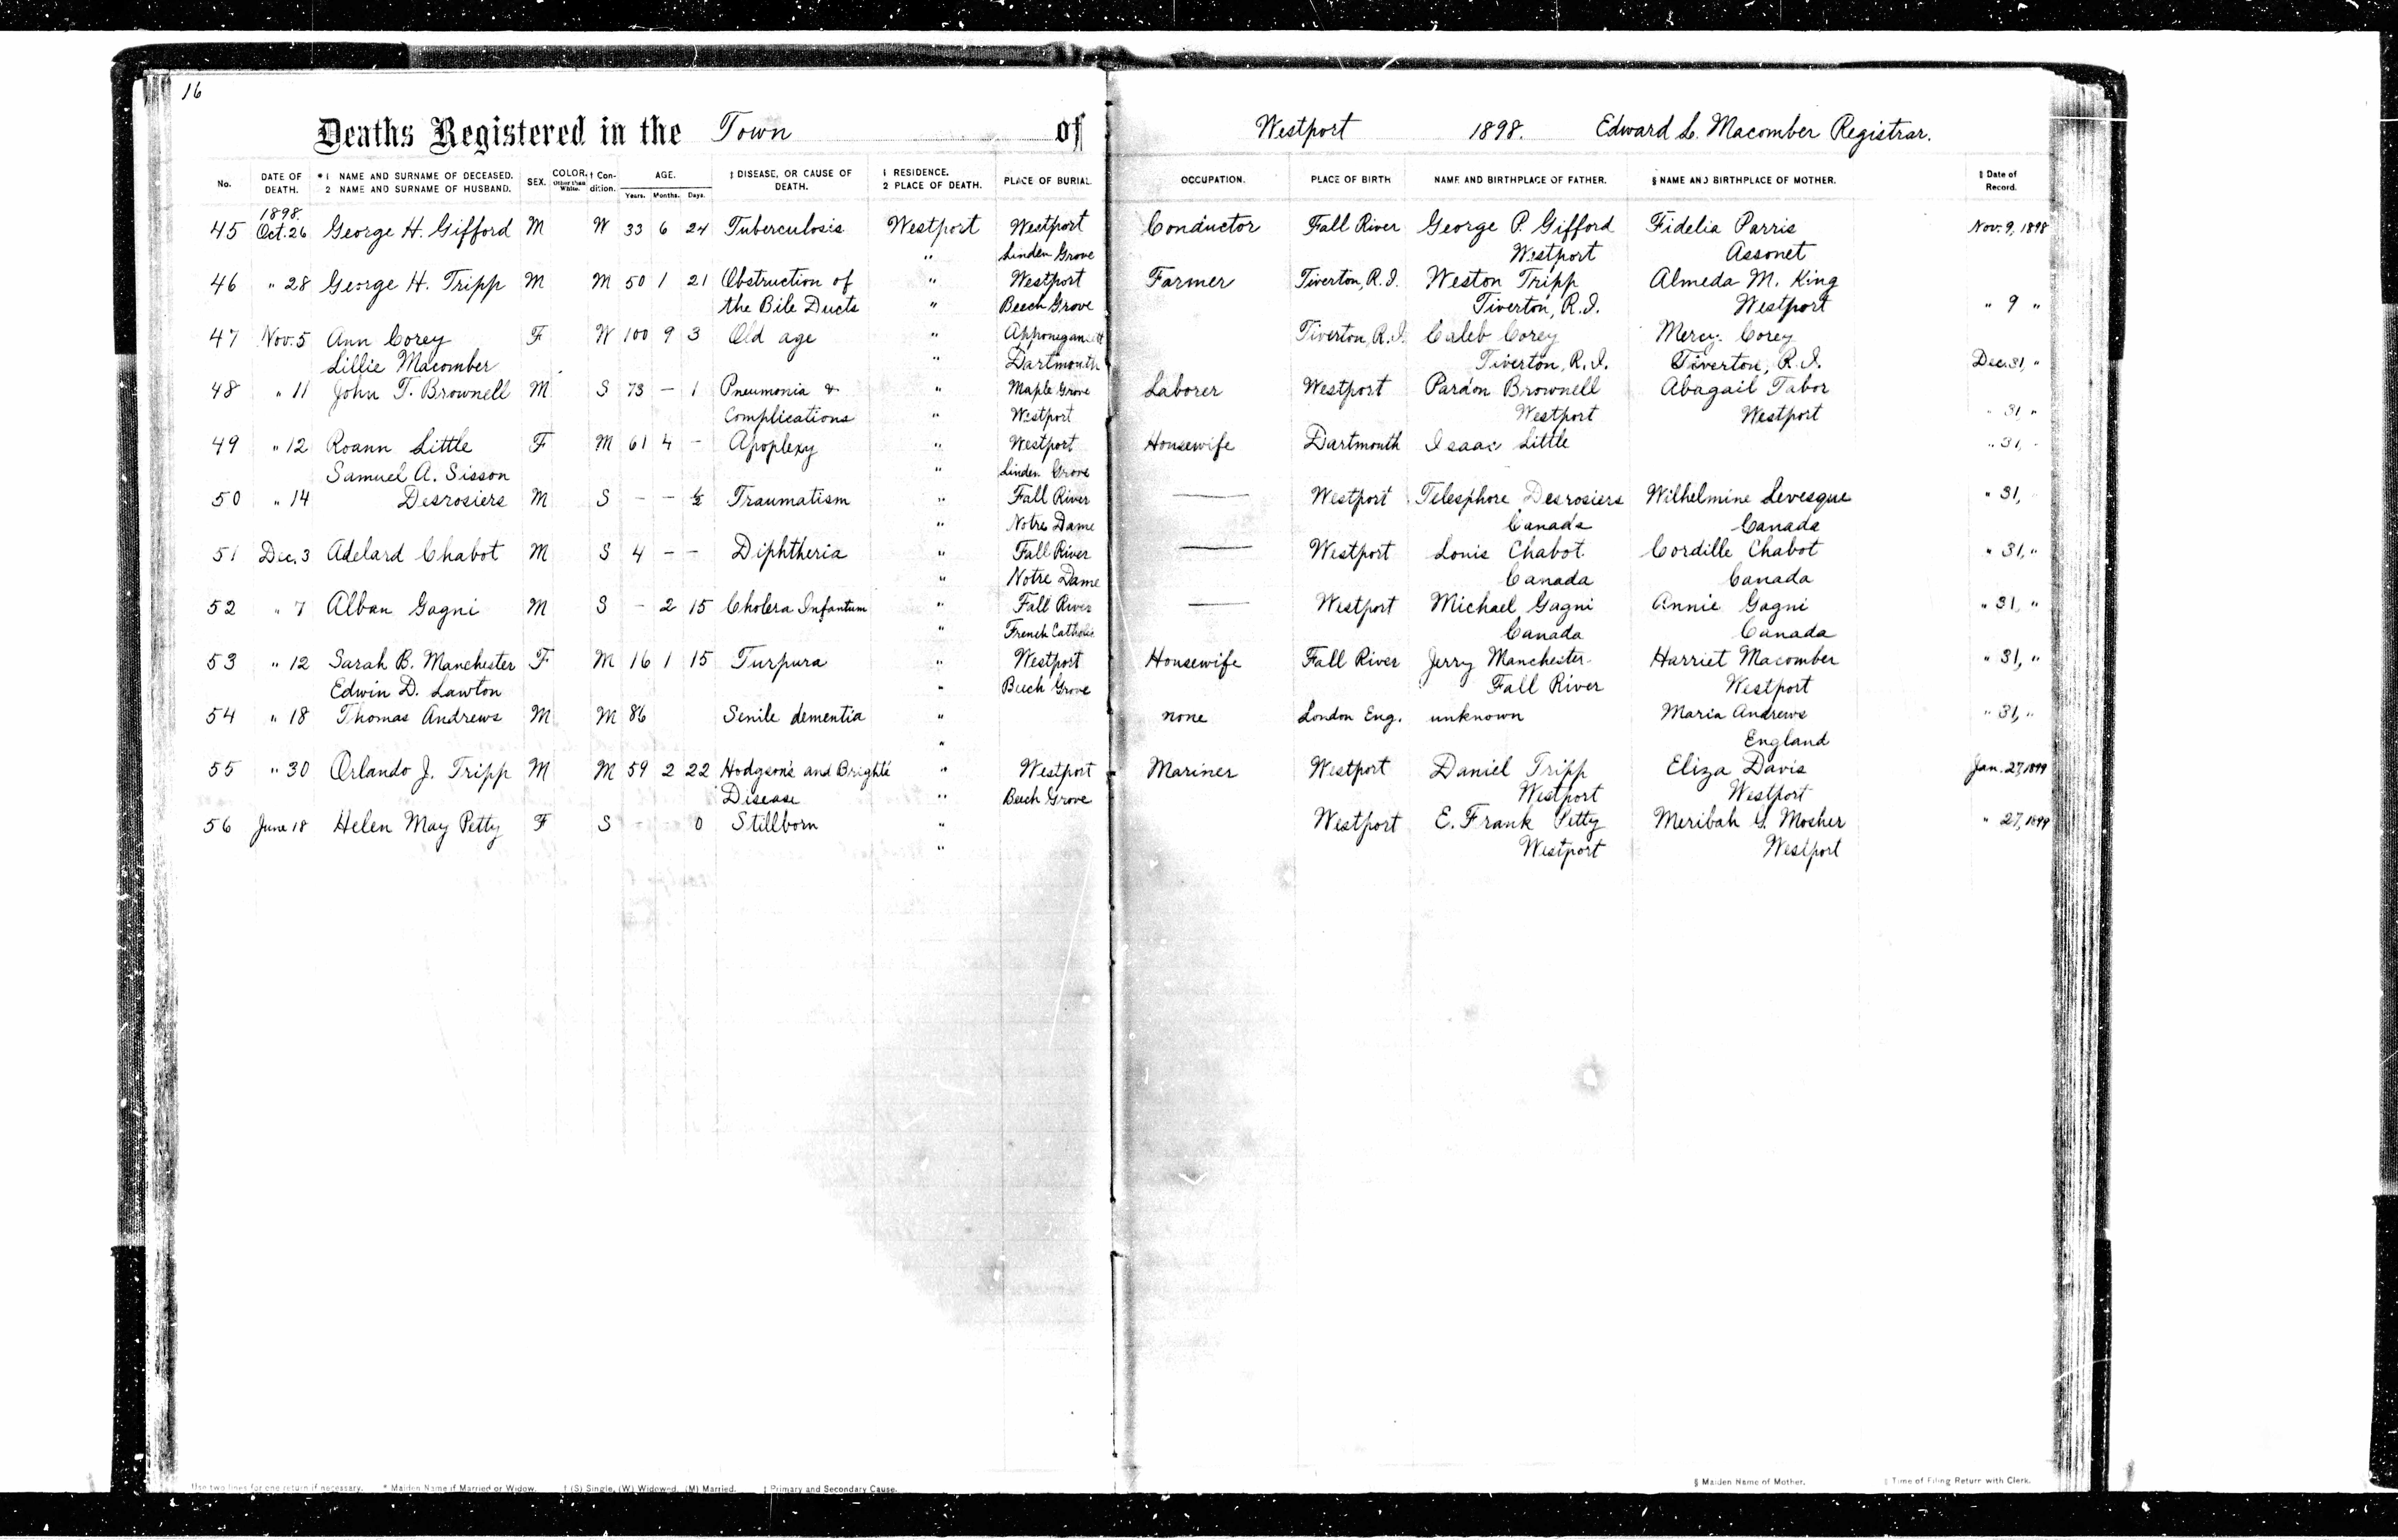 16
Deaths Registered in the Town of Westport 1898. Edward L. Macomber Registrar.
No. DATE OF DEATH. *1 NAME AND SURNAME OF DECEASED. 2 NAME AND SURNAME OF HUSBAND. SEX. COLOR, Other than White. † Condition. AGE. Years. Months. Days. ‡ DISEASE, OR CAUSE OF DEATH. 1 RESIDENCE. 2 PLACE OF DEATH. PLACE OF BURIAL OCCUPATION. PLACE OF BIRTH NAME AND BIRTHPLACE OF FATHER. § NAME AND BIRTHPLACE OF MOTHER. Date of Record.
1898.
45 Oct. 26 George H. Gifford M W 33 6 24 Tuberculosis Westport Westport Conductor Fall River George P. Gifford Fidelia Parris Nov. 9, 1898
" Linden Grove Westport Assonet
46 " 28 George H. Tripp M M 50 1 21 Obstruction of " Westport Farmer Tiverton, R.I. Weston Tripp Almeda M. King
the Bile Ducts " Beech Grove Tiverton, R.I. Westport " 9 "
47 Nov. 5 Ann Corey F W 100 9 3 Old age " Tiverton, R.I. Caleb Corey Mercy Corey
Lillie Macomber " Dartmouth Tiverton, R.I. Tiverton, R.I. Dec. 31, "
48 " 11 John T. Brownell M S 73 – 1 Pneumonia & " Maple Grove Laborer Westport Pardon Brownell Abagail Tabor
Complications " Westport Westport Westport " 31 "
49 " 12 Roann Little F M 61 4 – Apoplexy " Westport Housewife Dartmouth Isaac Little " 31,
Samuel A. Sisson " Linden Grove
50 " 14 Desrosiers M S – – ½ Traumatism " Fall River — Westport Telesphore Desrosiers Wilhelmine Levesque " 31,
" Notre Dame Canada Canada
51 Dec. 3 Adelard Chabot M S 4 – – Diphtheria " Fall River — Westport Louis Chabot Cordille Chabot " 31, "
" Notre Dame Canada Canada
52 " 7 Alban Gagni M S – 2 15 Cholera Infantum " Fall River — Westport Michael Gagni Annie Gagni " 31, "
" French Catholic Canada Canada
53 " 12 Sarah B. Manchester F M 16 1 15 Purpura " Westport Housewife Fall River Jerry Manchester Harriet Macomber " 31, "
Edwin D. Lawton " Beech Grove Fall River Westport
54 " 18 Thomas Andrews M M 86 Senile dementia " none London Eng. unknown Maria Andrews " 31, "
" England
55 " 30 Orlando J. Tripp M M 59 2 22 Hodgson's and Bright's " Westport Mariner Westport Daniel Tripp Eliza Davis Jan. 27, 1899
Disease " Beech Grove Westport Westport
56 June 18 Helen May Petty F S – – 0 Stillborn " Westport E. Frank Petty Meribah G. Mosher " 27, 1899
" Westport Westport
Use two lines for one return if necessary. * Maiden Name if Married or Widow. † (S) Single, (W) Widowed, (M) Married. ‡ Primary and Secondary Cause. § Maiden Name of Mother. Time of Filing Return with Clerk.